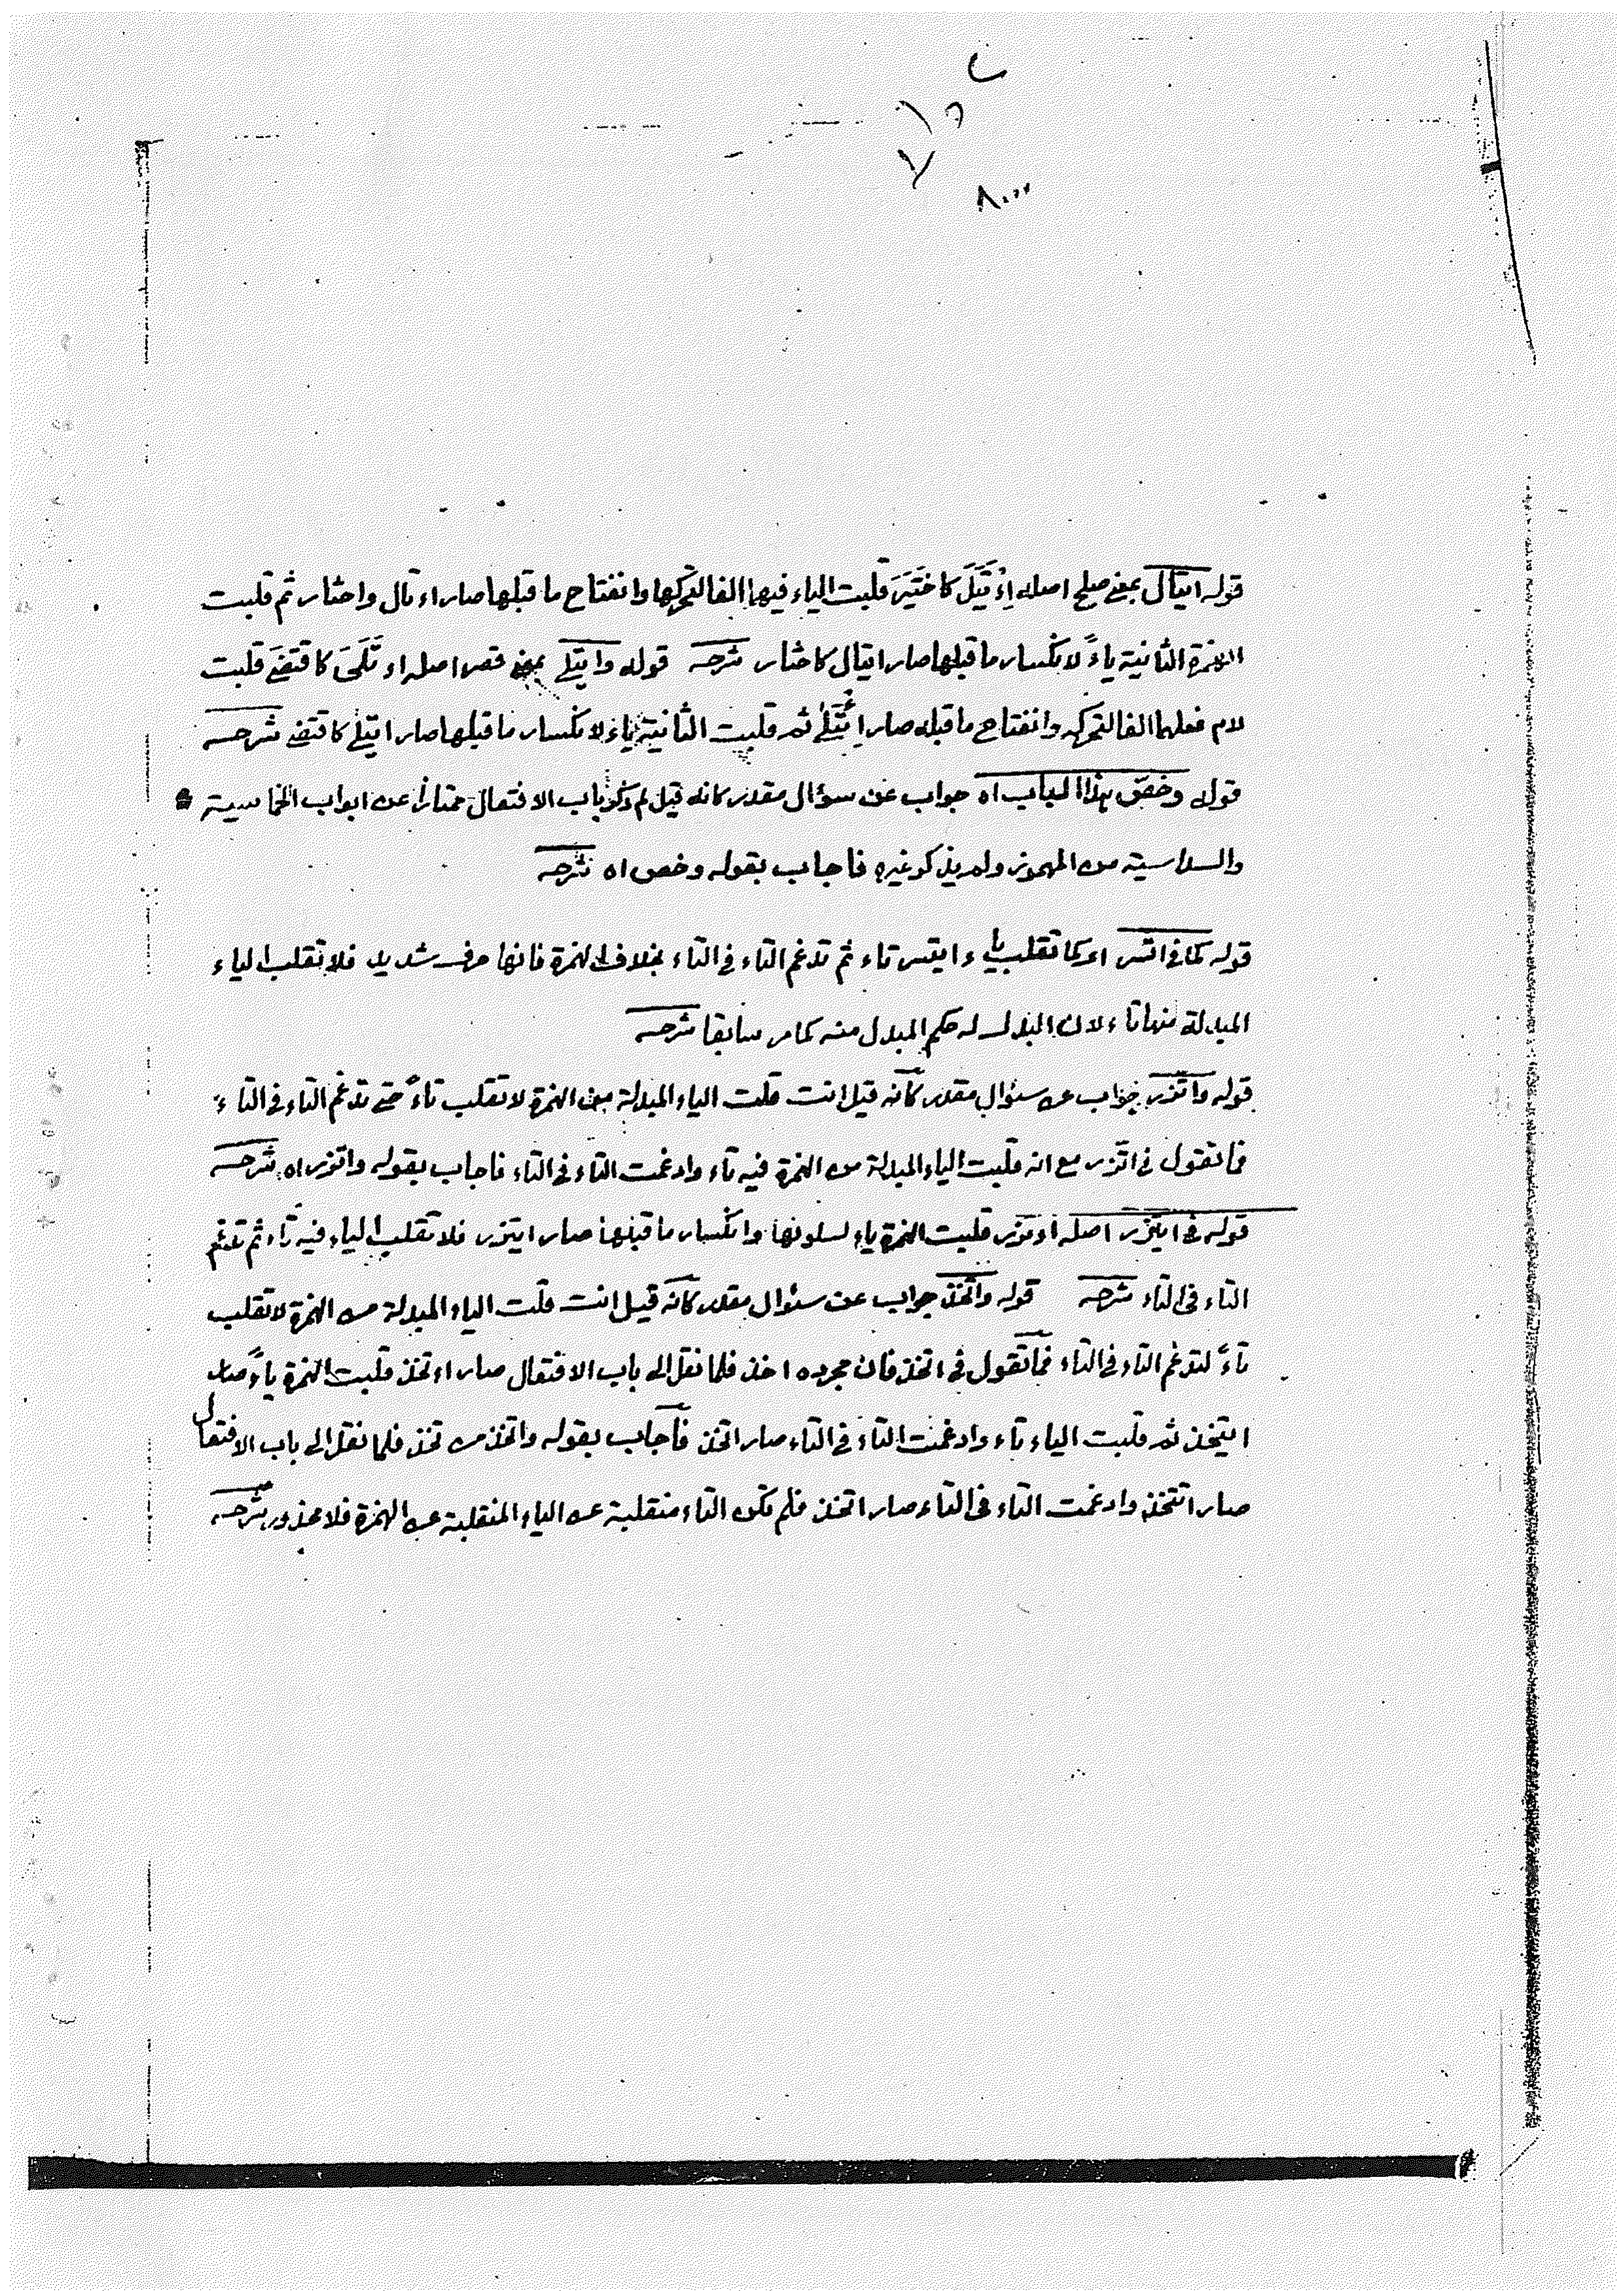 قوله ايتال بمعنى صلح اصله اِءْتَيَلَ كاختَيَرَ قلبت الياء فيها الفا لتحركها وانفتاح ما قبلها صار اءتال واختار ثم قلبت
الهمزة الثانية ياءً لانكسار ما قبلها صار ايتال كاختار شرحه قوله وايتلى بمعنى قصر اصله اءتَلَىَ كاقتضَىَ قلبت
لام فعلهما الفا لتحركه وانفتاح ما قبله صار اِئْتَلى ثم قلبت الثانية ياء لانكسار ما قبلها صار ايتلى كاقتضى شرحه
قوله وخصّ هذا الباب اه جواب عن سؤال مقدر كانه قيل لم ذكر باب الافتعال ممتازا عن ابواب الخماسية
والسداسية من المهموز ولم يذكر غيره فاجاب بقوله وخص اه شرحه
قوله كما فى اتسر اى كما تقلب ياء وايتسر تاء ثم تدغم التاء فى التاء بخلاف الهمزة فانها حرف شديد فلا تقلب الياء
المبدلة منها تاء لان المبدل له حكم المبدل منه كما مر سابقا شرحه
قوله واتّزر جواب عن سئوال مقدر كأنه قيل انت قلت الياء المبدلة من الهمزة لا تقلب تاءً حتى تدغم التاء فى التاء
فما تقول فى اتّزر مع انه قلبت الياء المبدلة من الهمزة فيه تاء وادغمت التاء فى التاء فاجاب بقوله واتزر اه شرحه
قوله فى ايتزر اصله اءتزر قلبت الهمزة ياء لسكونها وانكسار ما قبلها صار ايتزر فلا تقلب الياء فيه تاء ثم تدغم
التاء فى التاء شرحه قوله واتّخذ جواب عن سئوال مقدر كأنه قيل انت قلت الياء المبدلة من الهمزة لا تقلب
تاءً لتدغم التاء فى التاء فما تقول فى اتخذ فان مجرده اخذ فلما نقل الى باب الافتعال صار اءتخذ قلبت الهمزة ياءً صار
ايتخذ ثم قلبت الياء تاء وادغمت التاء فى التاء صار اتخذ فآجاب بقوله واتخذ من تخذ فلما نقل الى باب الافتعال
صار اتتخذ وادغمت التاء فى التاء صار اتخذ فلم تكن التاء منقلبة عن الياء المنقلبة عن الهمزة فلا محذور شرحه